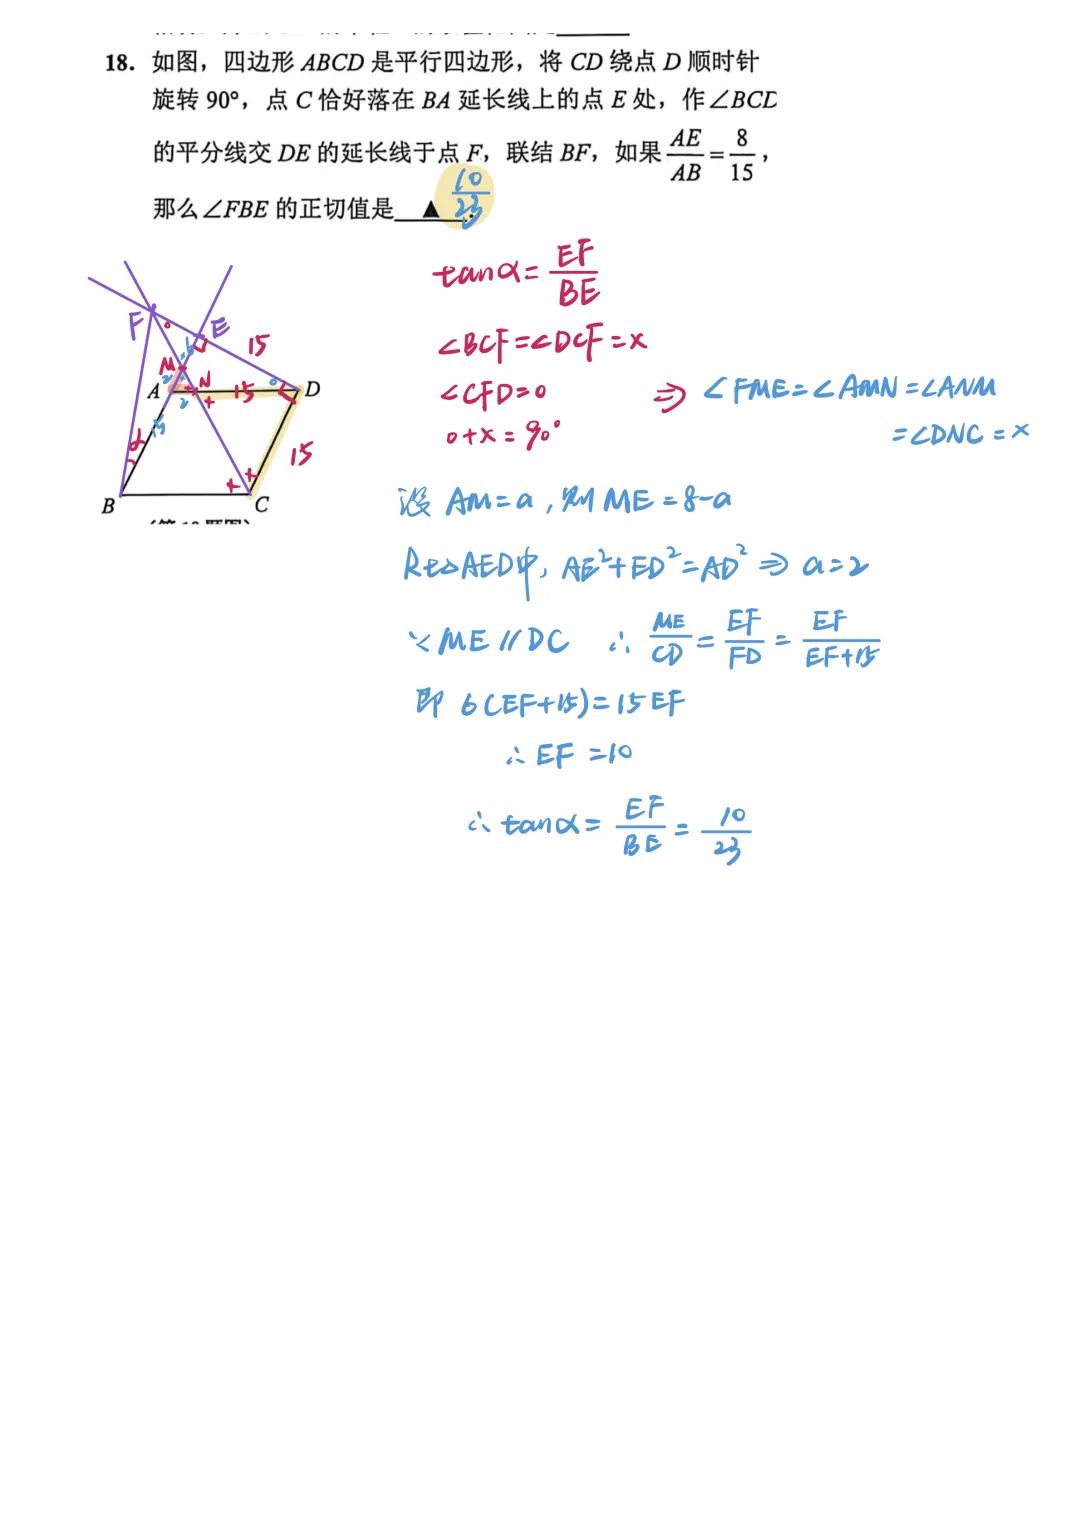 18. 如图，四边形 ABCD 是平行四边形，将 CD 绕点 D 顺时针
旋转 90°，点 C 恰好落在 BA 延长线上的点 E 处，作∠BCD
的平分线交 DE 的延长线于点 F，联结 BF，如果 AE/AB = 8/15，
那么∠FBE 的正切值是 ▲ .
10/23
tanα = EF/BE
∠BCF=∠DCF=x
∠CFD=o
o+x=90°
⇒ ∠FME=∠AMN=∠ANM
=∠DNC=x
F
E
15
6
M
2
N
A
15
D
2
15
α
15
B
C
设 AM=a，则 ME=8-a
Rt△AED中，AE²+ED²=AD² ⇒ a=2
∵ME∥DC ∴ ME/CD = EF/FD = EF/EF+15
即 6(EF+15)=15EF
∴EF=10
∴tanα= EF/BE = 10/23